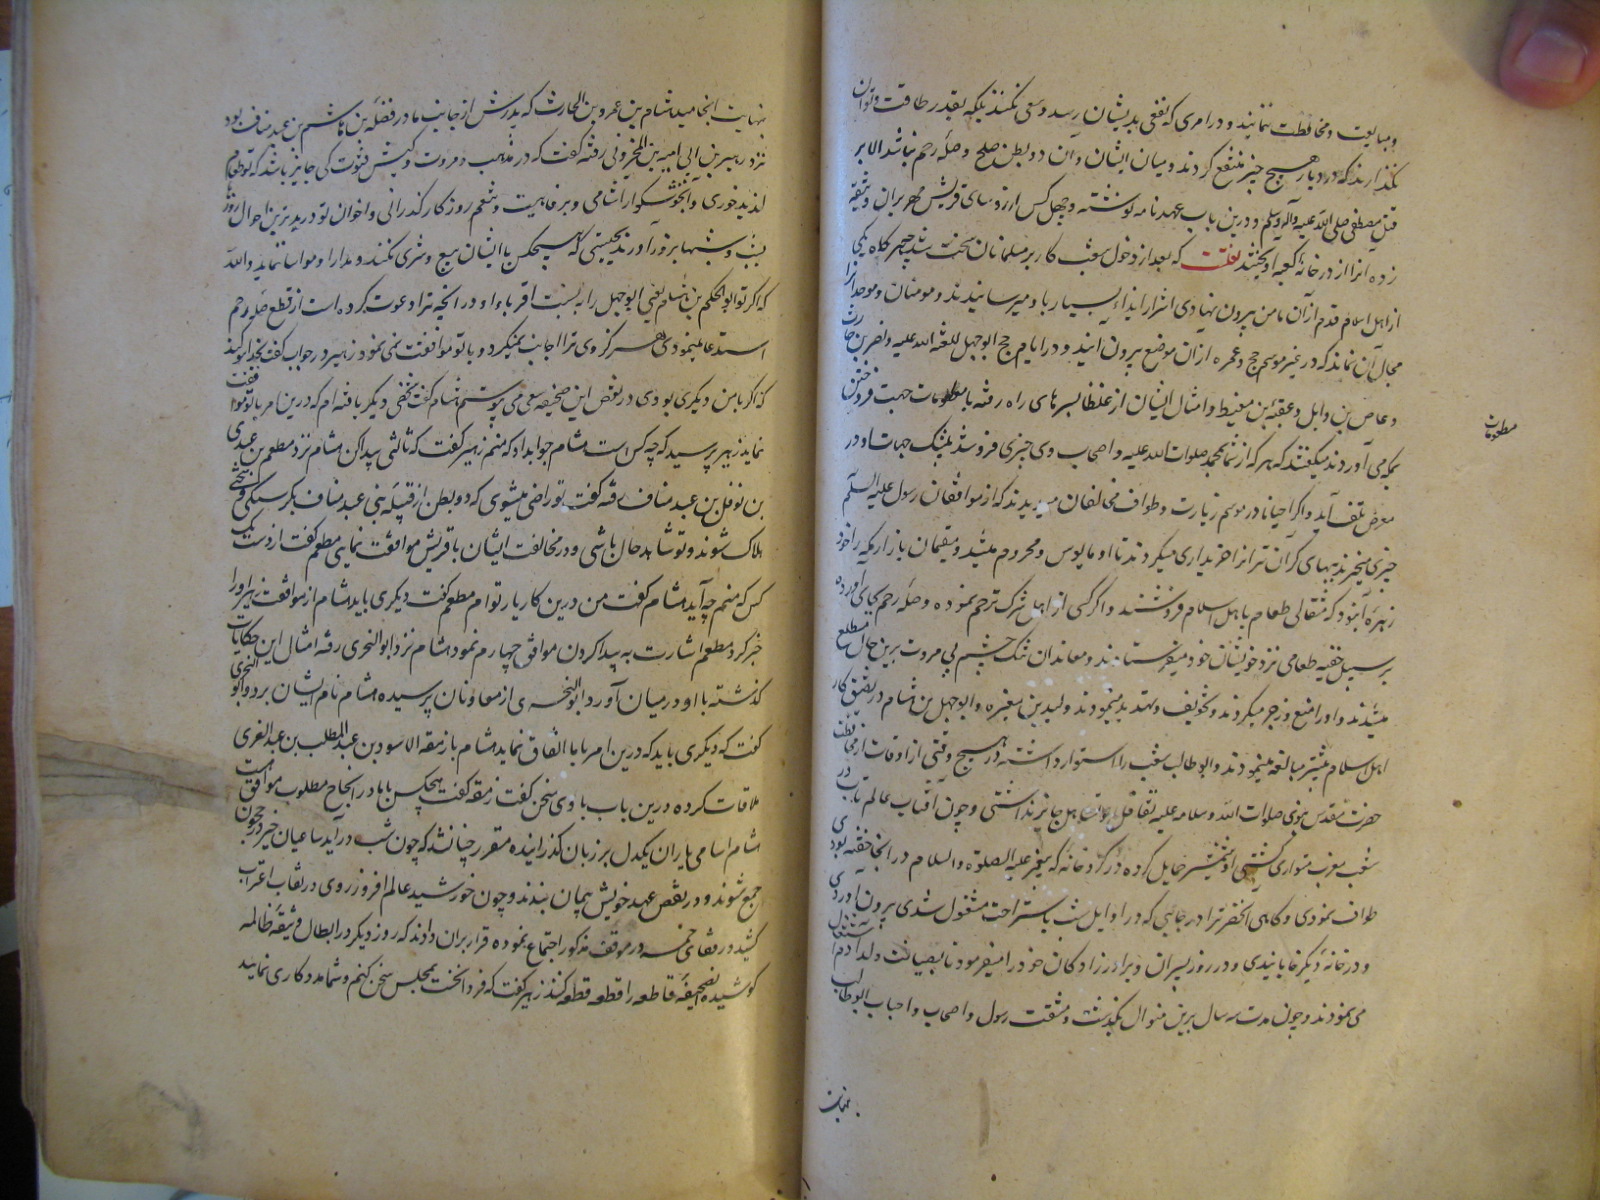 و مبایعت و مخالطت ننمایند و در امری که نفعی بدیشان رسد سعی نکنند بلکه بقدر طاقت و توان
نگذارند که در دیار هیچ چیز منتفع کردند و میان ایشان و آن دو بطن صلح و صلهٔ رحم نباشد الا بر
قتل مصطفی صلی الله علیه وآله وسلم و درین باب عهدنامه نوشته و چهل کس از رؤسای قریش مهر بران وثیقه
زده انرا از در خانهٔ کعبه اویختند نقلست که بعد از دخول شعب کار بر مسلمانان سخت شد چه هرکاه یکی
از اهل اسلام قدم از آن مامن بیرون نهادی اشرار ایذاء بسیار باو میرسانیدند و مومنان و موحدانرا
مجال آن نماند که در غیر موسم حج و عمره از ان موضع بیرون آیند و در ایام حج ابو جهل لعنة الله علیه و نضر بن حارث
و عاص بن وایل و عقبة بن معیط و امثال ایشان از غلظا بسرهای راه رفته با مطعومات جهت فروختن
مطعومات
بمکه می آوردند میکفتند که هر که از شما بمحمد صلوات الله علیه و اصحاب وی چیزی فروشد بیشک جهات او در
معرض تلف آید و اکر احیانا در موسم زیارت و طواف مخالفان میدیدند که از موافقان رسول علیه السلم
چیزی میخرند ببهای کران تر انرا خریداری میکردند تا او مایوس و محروم میشد و مقیمان بازار مکه را خود
زهره آن نبود که مثقالی طعام با هل اسلام فروشند و اکر کسی از اهل شرک ترحم نموده و صلهٔ رحم بجای آورده
بر سبیل خفیه طعامی نزد خویشان خود میفرستادند و معاندان تنک چشم بی مروت برین حال مطلع
میشدند و او را منع و زجر میکردند و تخویف و تهدید مینمودند ولید بن مغیره و ابو جهل بن هشام در تضییق کار
اهل اسلام بیشتر مبالغه مینمودند و ابو طالب شعب را استوار داشته در هیچ وقتی از اوقات از محافظت
حضرت مقدس نبوی صلوات الله وسلامه علیه تغافل و تساهل جایز نداشتی و چون آفتاب عالم تاب در
شعب مغرب متواری کشتی او شمشیر حمایل کرده در کرد خانهٔ که پیغمبر علیه الصلوة والسلام در انجا خفته بودی
طواف نمودی و کاهی انحضرترا در جایی که در اوایل شب باستراحت مشغول شدی بیرون آوردی
و در خانهٔ دیکر خابانیدی و در روز پسران و برادر زادکان خود را میفرمود تا بصیانت ولد آدم اشتغال
می نمودند و چون مدت سه سال برین منوال بکذشت و مشقت رسول و اصحاب و احباب ابو طالب
بنهایت
بنهایت انجامید هشام بن عمرو بن الحارث که پدرش از جانب مادر فضلة بن هاشم بن عبد مناف بود
نزد زهیر بن ابی امیه بن المخزونی رفته کفت که در مذهب و مروت و کیش فتوت کی جایز باشد که تو طعام
لذیذ خوری و آب خوشکوار آشامی و بر فاهیت و تنعم روز کار کذرانی و اخوان تو در بدترین احوال روزها
بشب و شبها بروز آورند بحیثیتی که هیچکس با ایشان بیع و شری نکنند و مدارا و مواسا ننماید والله
که اکر تو ابو الحکم بن هشام یعنی ابو جهل را به نسبت اقرباء او در انچه ترا دعوت کرده است از قطع صله رحم
استدعا مینمودی هرکز وی ترا اجابت نمیکرد و با تو موافقت نمی نمود زهیر در جواب کفت بخدا سوکند
که اکر با من دیکری بودی در نقض این صحیفه سعی می پیوستم هشام کفت شخصی دیکر یافته ام که درین امر با تو موافقت
نماید زهیر پرسید که چه کس است هشام جواب داد که منم زهیر کفت که ثالثی پیدا کن هشام نزد مطعم بن عدی
بن نوفل بن عبد مناف رفته کفت تو راضی میشوی که دو بطن از قبیله بنی عبد مناف بکرسنکی و سختی
هلاک شوند و تو شاهد حال باشی و در مخالفت ایشان با قریش موافقت نمایی مطعم کفت از دست یک
کس که منم چه آید هشام کفت من درین کار یار توام مطعم کفت دیکری باید هشام از موافقت زهیر او را
خبر کرد مطعم اشارت به پیدا کردن موافق چهارم نمود هشام نزد ابو البختری رفته امثال این حکایات
کذشته با او در میان آورد ابو البختری از معاونان پرسیده هشام نام ایشان برد و ابو البختری
کفت که دیکری باید که درین امر با ما اتفاق نماید هشام با زمعة الاسود بن عبد المطلب بن عبد العزی
ملاقات کرده درین باب با وی سخن کفت زمعه کفت هیچکس با ما در انجاح مطلوب موافق هست
هشام اسامی یاران یکدل بر زبان کذرانیده مقرر چنان شد که چون شب در آید ساعیان خیر در حجون
جمع شوند و در نقض عهد خویش پیمان بندند و چون خورشید عالم افروز روی در نقاب اغتراب
کشید رفقای خمسه در موقف مذکور اجتماع نموده قرار بران دادند که روز دیکر در ابطال وثیقهٔ ظالمه
کوشیده صحیفهٔ قاطعه را قطعه قطعه کنند زهیر کفت که فردا نخست بمجلس سخن کنم و شما مددکاری نمایید